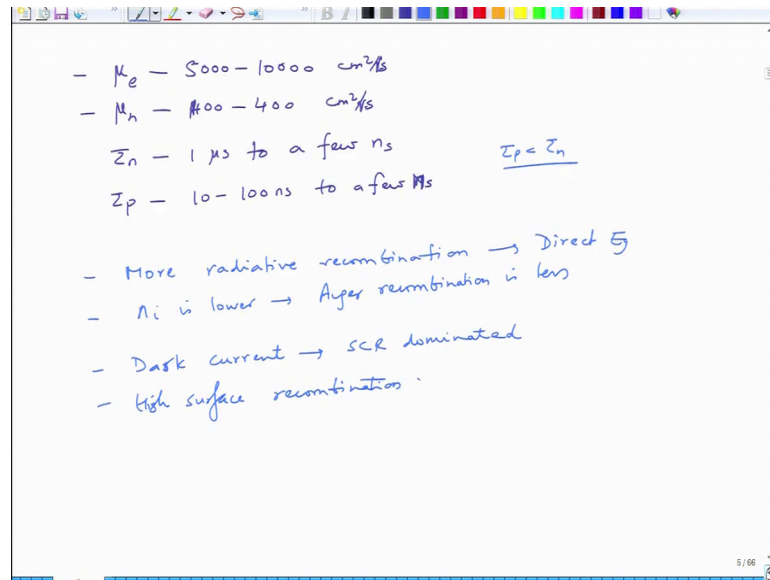 - μe - 5000-10000 cm²/Vs
- μh - 100-400 cm²/Vs
τn - 1 μs to a few ns
τp - 10-100ns to a few ns
τp < τn
- More radiative recombination → Direct Eg
- ni is lower → Auger recombination is less
- Dark current → SCR dominated
- High surface recombination.
5/66